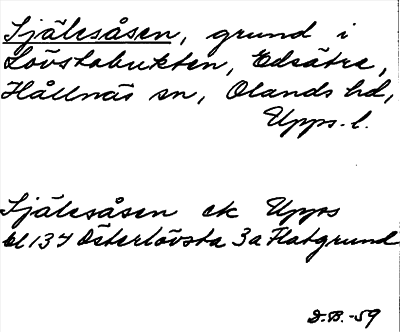 Själesåsen, grund i
Lövstabukten, Edsätra,
Hållnäs sn, Olands hd,
Upps. l.
Själesåsen ek Upps
bl 137 Österlövsta 3a Flatgrund
D.B. -59